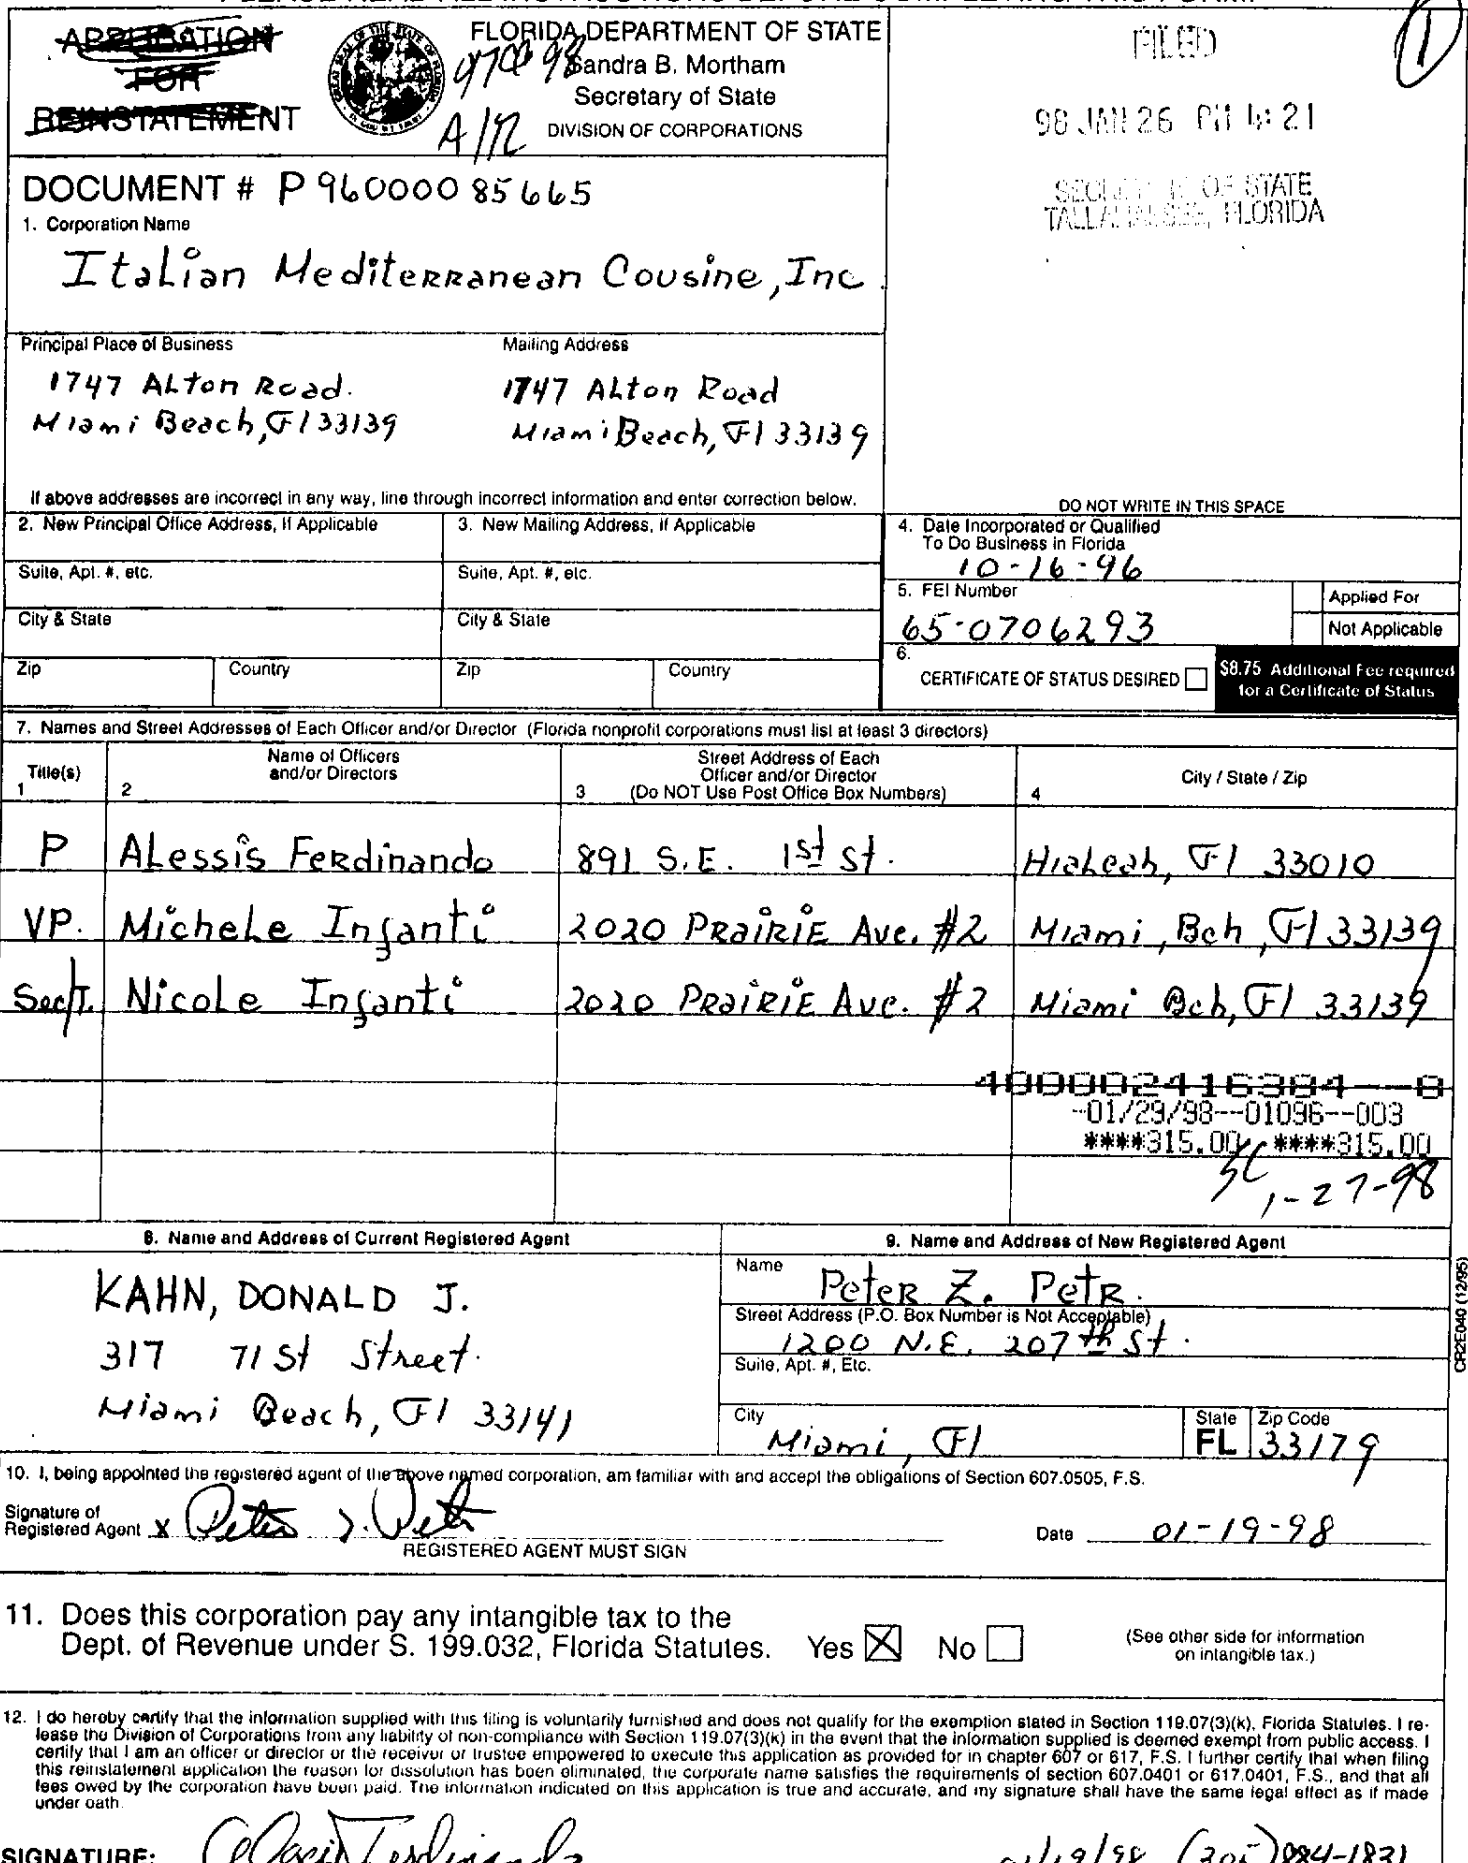 PLEASE READ ALL INSTRUCTIONS BEFORE COMPLETING THIS FORM.
APPLICATION
FOR
REINSTATEMENT
FLORIDA DEPARTMENT OF STATE
Sandra B. Mortham
Secretary of State
DIVISION OF CORPORATIONS
97 98
A/R
FILED
98 JAN 26 PM 4:21
SECRETARY OF STATE
TALLAHASSEE, FLORIDA
1
DOCUMENT # P96000085665
1. Corporation Name
Italian Mediterranean Cousine, Inc.
Principal Place of Business
Mailing Address
1747 Alton Road.
1747 Alton Road
Miami Beach, Fl 33139
Miami Beach, Fl 33139
If above addresses are incorrect in any way, line through incorrect information and enter correction below.
DO NOT WRITE IN THIS SPACE
2. New Principal Office Address, If Applicable
3. New Mailing Address, If Applicable
4. Date Incorporated or Qualified
To Do Business in Florida
10-16-96
Suite, Apt. #, etc.
Suite, Apt. #, etc.
5. FEI Number
65-0706293
Applied For
Not Applicable
City & State
City & State
Zip
Country
Zip
Country
6.
CERTIFICATE OF STATUS DESIRED
$8.75 Additional Fee required
for a Certificate of Status
7. Names and Street Addresses of Each Officer and/or Director (Florida nonprofit corporations must list at least 3 directors)
Title(s)
1
Name of Officers
and/or Directors
2
Street Address of Each
Officer and/or Director
3 (Do NOT Use Post Office Box Numbers)
City / State / Zip
4
P ALessis Ferdinando 891 S.E. 1st St. Hialeah, Fl 33010
VP. Michele Infanti 2020 Prairie Ave. #2 Miami, Bch, Fl 33139
Sec/T. Nicole Infanti 2020 Prairie Ave. #2 Miami Bch, Fl 33139
400002416384--8
-01/29/98--01096--003
****315.00 ****315.00
1-27-98
8. Name and Address of Current Registered Agent
KAHN, DONALD J.
317 71St Street.
Miami Beach, Fl 33141
9. Name and Address of New Registered Agent
Name
Peter Z. Petr.
Street Address (P.O. Box Number is Not Acceptable)
1200 N.E. 207th St.
Suite, Apt. #, Etc.
City
Miami, Fl
State
FL
Zip Code
33179
CR2E040 (12/95)
10. I, being appointed the registered agent of the above named corporation, am familiar with and accept the obligations of Section 607.0505, F.S.
Signature of
Registered Agent x Peter Z. Petr
Date 01-19-98
REGISTERED AGENT MUST SIGN
11. Does this corporation pay any intangible tax to the
Dept. of Revenue under S. 199.032, Florida Statutes. Yes X No
(See other side for information
on intangible tax.)
12. I do hereby certify that the information supplied with this filing is voluntarily furnished and does not qualify for the exemption stated in Section 119.07(3)(k), Florida Statutes. I re-
lease the Division of Corporations from any liability of non-compliance with Section 119.07(3)(k) in the event that the information supplied is deemed exempt from public access. I
certify that I am an officer or director or the receiver or trustee empowered to execute this application as provided for in chapter 607 or 617, F.S. I further certify that when filing
this reinstatement application the reason for dissolution has been eliminated, the corporate name satisfies the requirements of section 607.0401 or 617.0401, F.S., and that all
fees owed by the corporation have been paid. The information indicated on this application is true and accurate, and my signature shall have the same legal effect as if made
under oath.
SIGNATURE:
01/19/98 (305) 884-1831